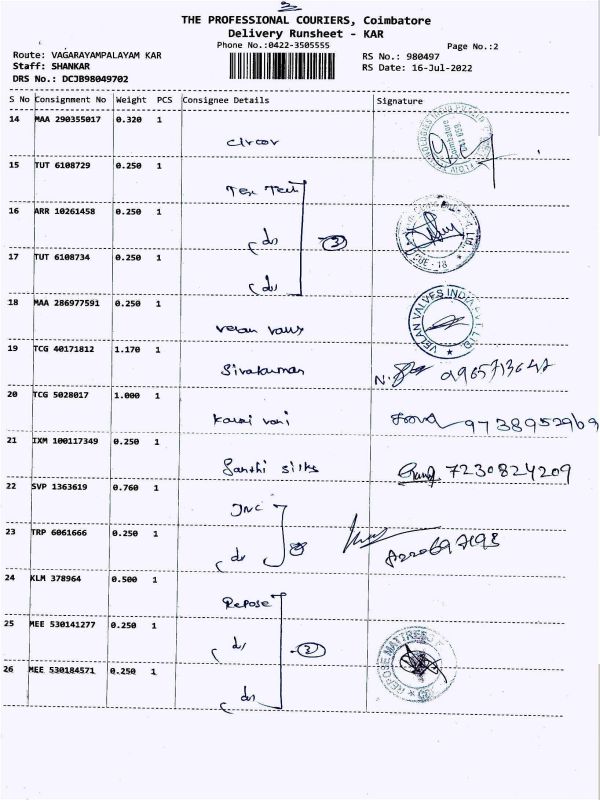 THE PROFESSIONAL COURIERS, Coimbatore
Delivery Runsheet - KAR
Phone No.:0422-3505555
Page No.:2
Route: VAGARAYAMPALAYAM KAR
RS No.: 980497
Staff: SHANKAR
RS Date: 16-Jul-2022
DRS No.: DCJB98049702
S No Consignment No Weight PCS Consignee Details Signature
14 MAA 290355017 0.320 1
15 TUT 6108729 0.250 1
Tex Tech
16 ARR 10261458 0.250 1
do
17 TUT 6108734 0.250 1
do
18 MAA 286977591 0.250 1
VELAN VALVES INDIA PVT. LTD.
19 TCG 40171812 1.170 1
Sivakumar
20 TCG 5028017 1.000 1
9738952969
21 IXM 100117349 0.250 1
Santhi silks
7230824209
22 SVP 1363619 0.760 1
JNC
23 TRP 6061666 0.250 1
do
24 KLM 378964 0.500 1
Repose
25 MEE 530141277 0.250 1
do
REPOSE MATTRESS
26 MEE 530184571 0.250 1
do